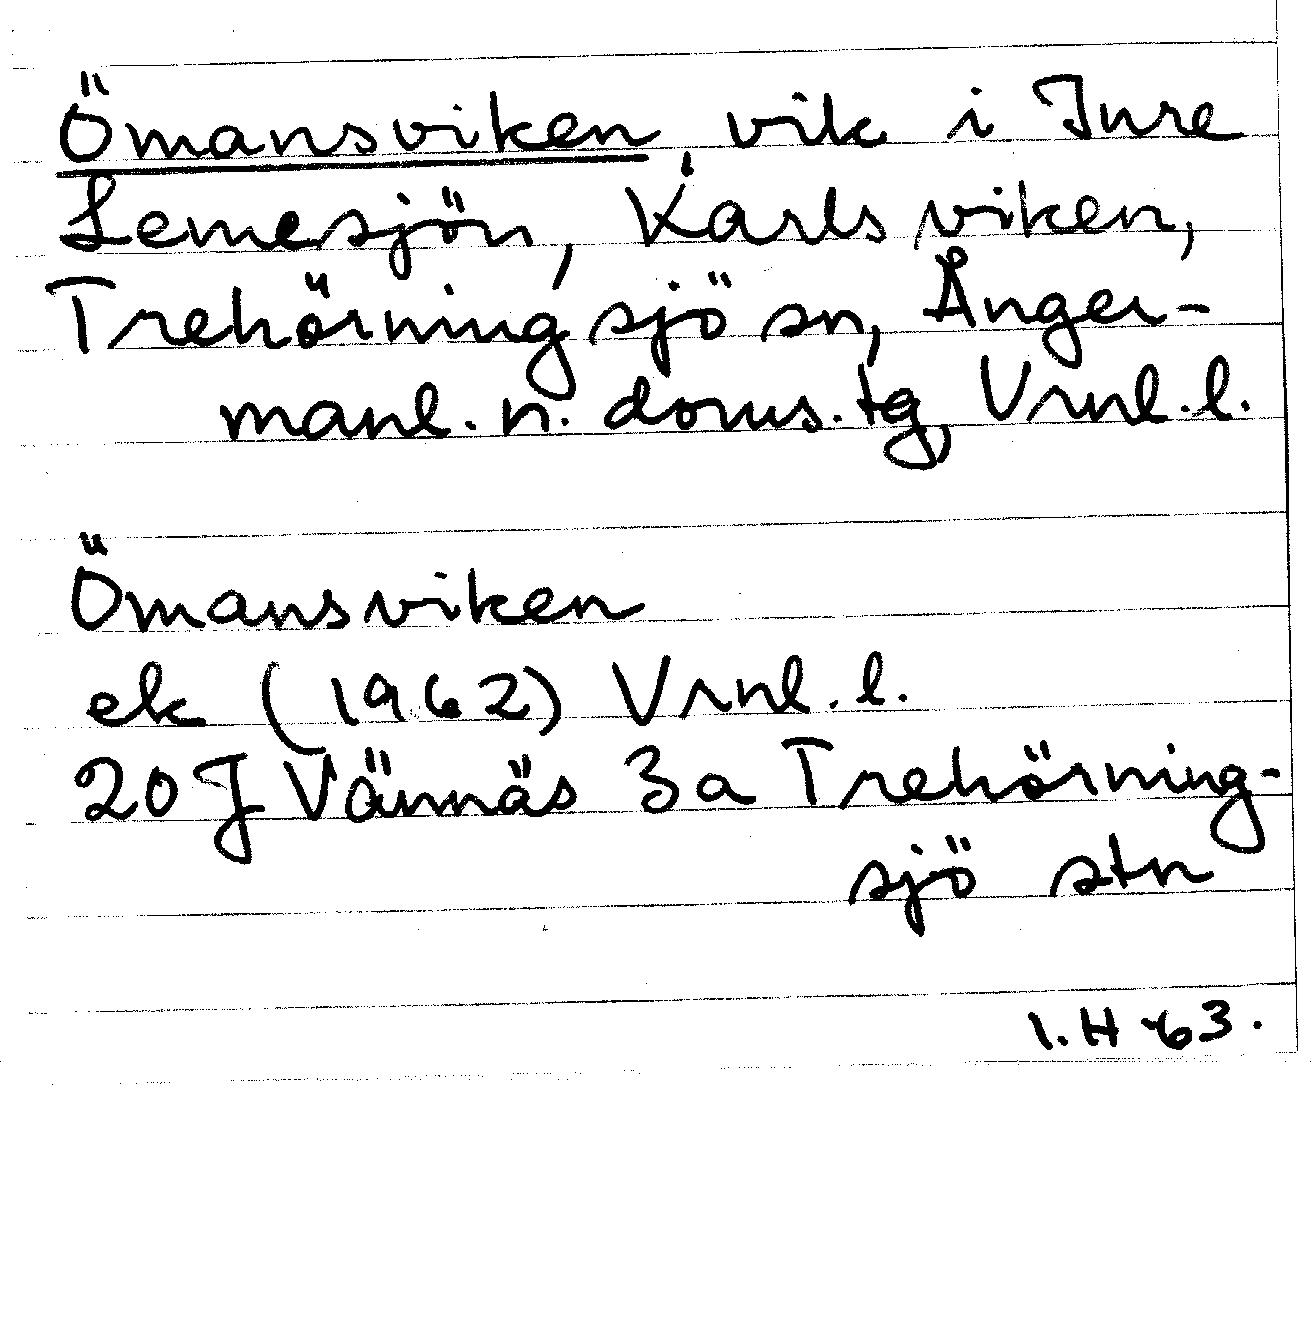 Ömansviken, vik i Inre
Lemesjön, Karlsviken,
Trehörningsjö sn, Ånger-
manl. n. doms. tg, Vrnl. l.
Ömansviken
ek (1962) Vrnl. l.
20 J Vännäs 3a Trehörning-
sjö stn
I.H -63.